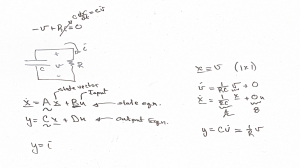 C dv/dt = Cv̇
-v + Ri = 0
i
+
C v R
-
state vector
input
ẋ = A x + B u ← state eqn.
y = C x + D u ← output eqn.
y = i
x = v (1x1)
v̇ = 1/RC v + 0
ẋ = 1/RC x + 0u
A B
y = Cv̇ = 1/R v